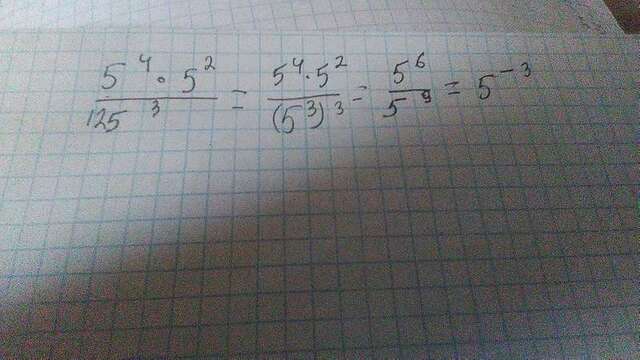 5⁴ · 5² / 125³ = 5⁴ · 5² / (5³)³ = 5⁶ / 5⁹ = 5⁻³